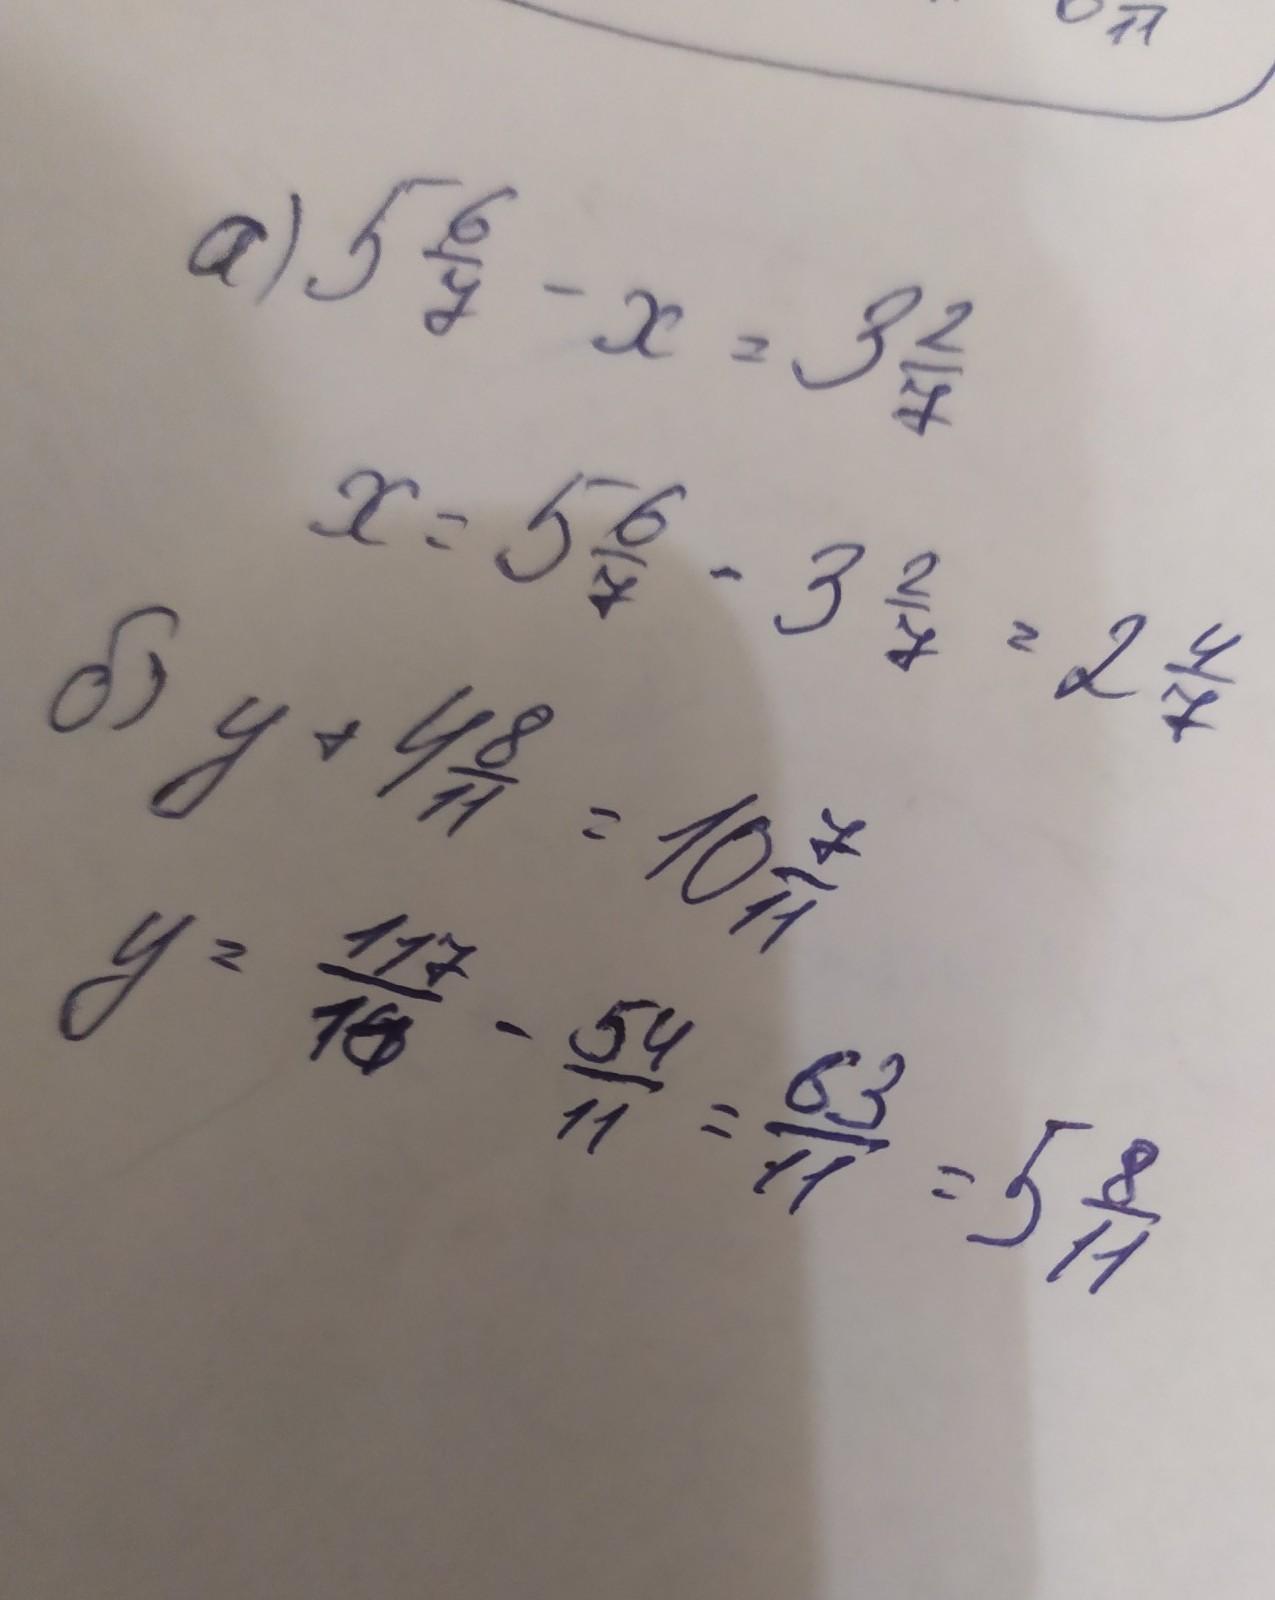 а) 5 6/7 - x = 3 2/7
x = 5 6/7 - 3 2/7 = 2 4/7
б) y + 4 8/11 = 10 7/11
y = 117/11 - 54/11 = 63/11 = 5 8/11